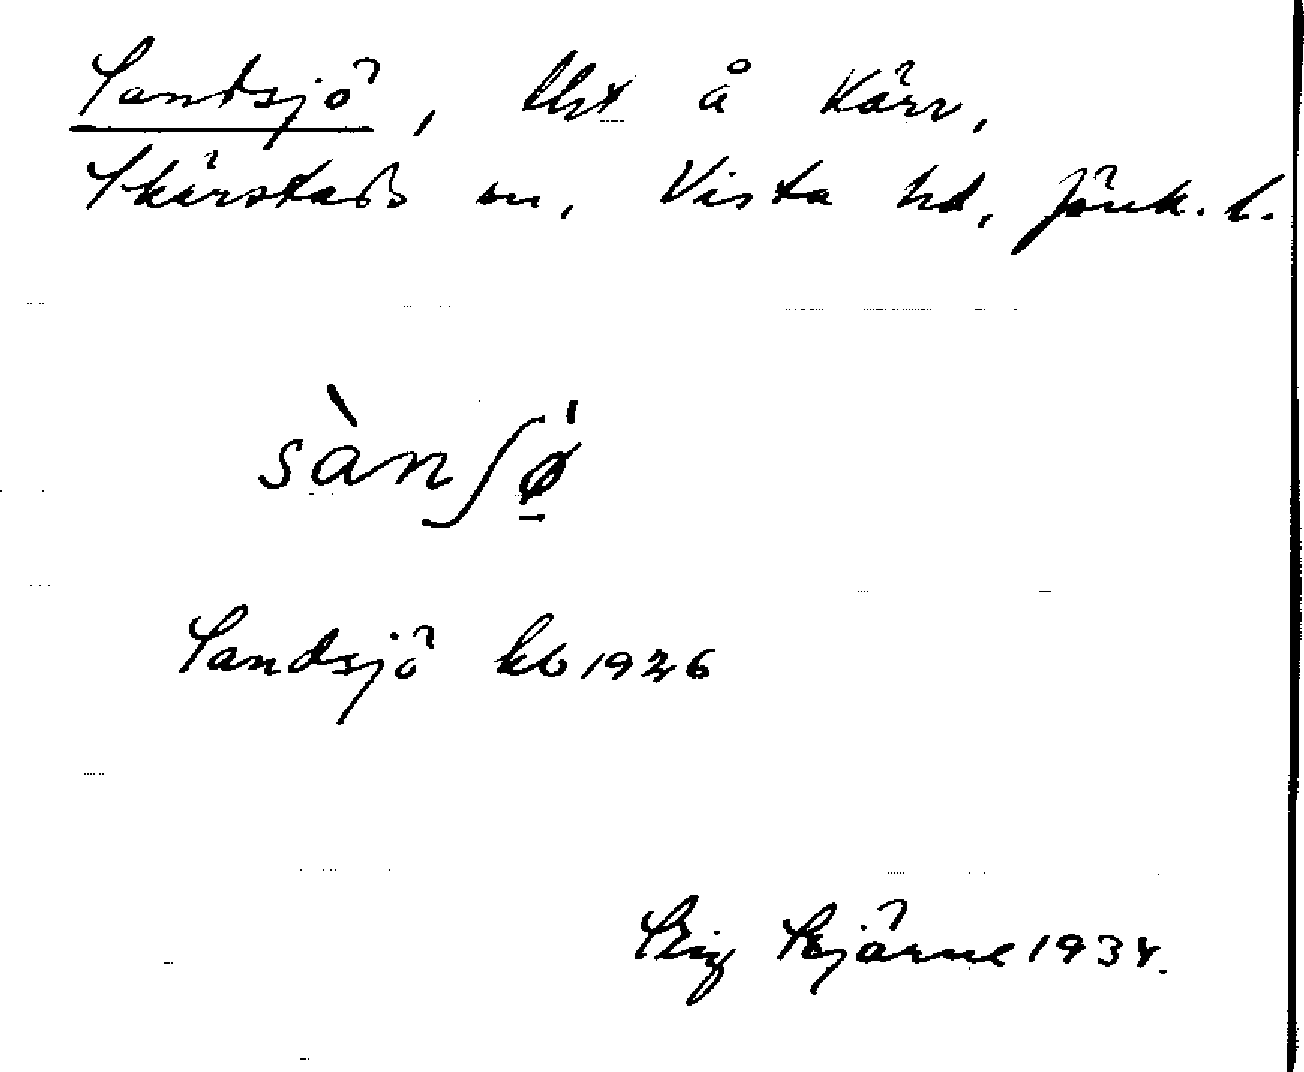 Sandsjö, lht å Kärr,
Skärstads sn, Vista hd, Jönk. l.
sàn∫ǿ̠
Sandsjö kb 1926
Stig Stjärne 1934.